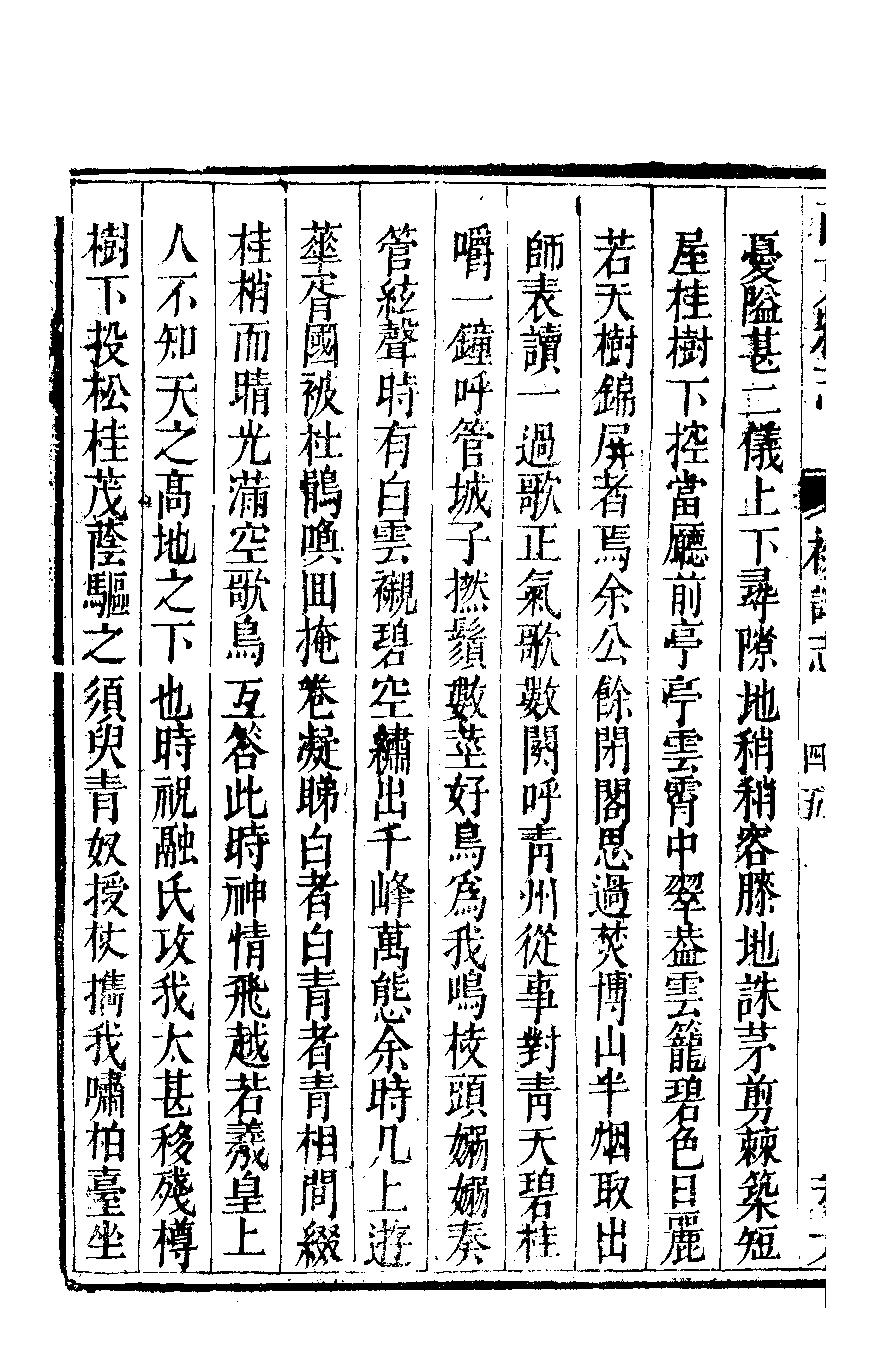 憂隘甚二儀上下尋隙地稍稍容膝地誅茅剪棘築短
屋桂樹下控當廳前亭亭雲霄中翠葢雲籠碧色日麗
若天樹錦屏者焉余公餘閉閣思過焚博山半烟取出
師表讀一過歌正氣歌數闋呼青州從事對青天碧桂
嚼一鐘呼管城子撚鬚數莖好鳥為我鳴枝頭嫋嫋奏
管絃聲時有白雲襯碧空繡出千峰萬態余時几上遊
華胥國被杜鵑喚回掩卷凝睇白者白青者青相間綴
桂梢而晴光滿空歌鳥互答此時神情飛越若羲皇上
人不知天之高地之下也時祝融氏攻我太甚移殘樽
樹下投松桂茂蔭驅之須臾青奴授杖攜我嘯柏臺坐
四五